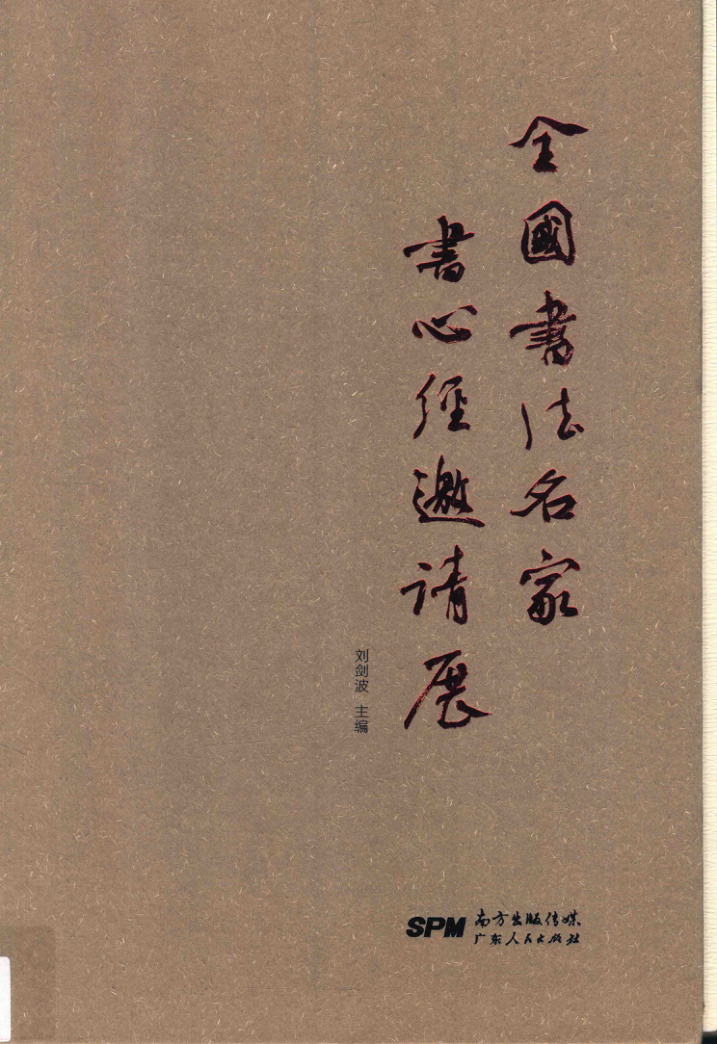 全國書法名家
書心經邀请展
刘剑波 主编
SPM 南方出版传媒
广东人民出版社